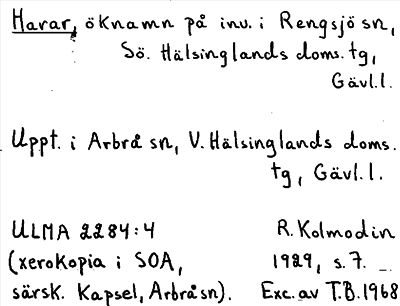 Harar, öknamn på inv. i Rengsjö sn,
Sö. Hälsinglands doms. tg,
Gävl.l.
Uppt. i Arbrå sn, V. Hälsinglands doms.
tg, Gävl.l.
ULMA 2284:4 R. Kolmodin
(xerokopia i SOA, 1929, s. 7.
särsk. Kapsel, Arbrå sn). Exc. av T.B. 1968